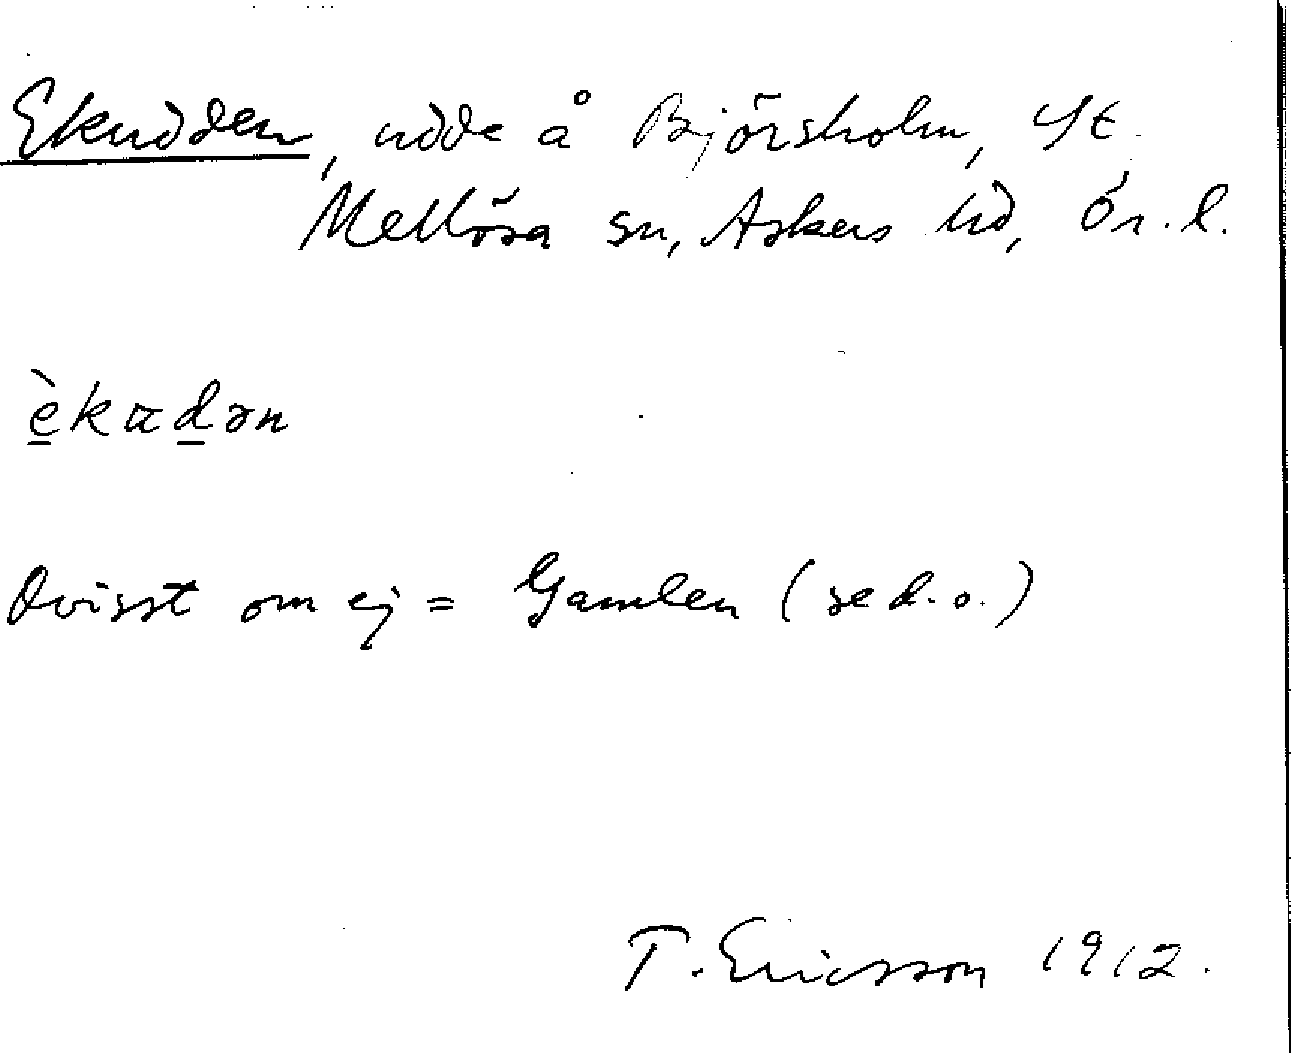 Ekudden, udde å Björsholm, St.
Mellösa sn, Askers hd, Ör. l.
èkudən
Ovisst om ej = Gamlen (se d.o.)
T. Ericsson 1912.